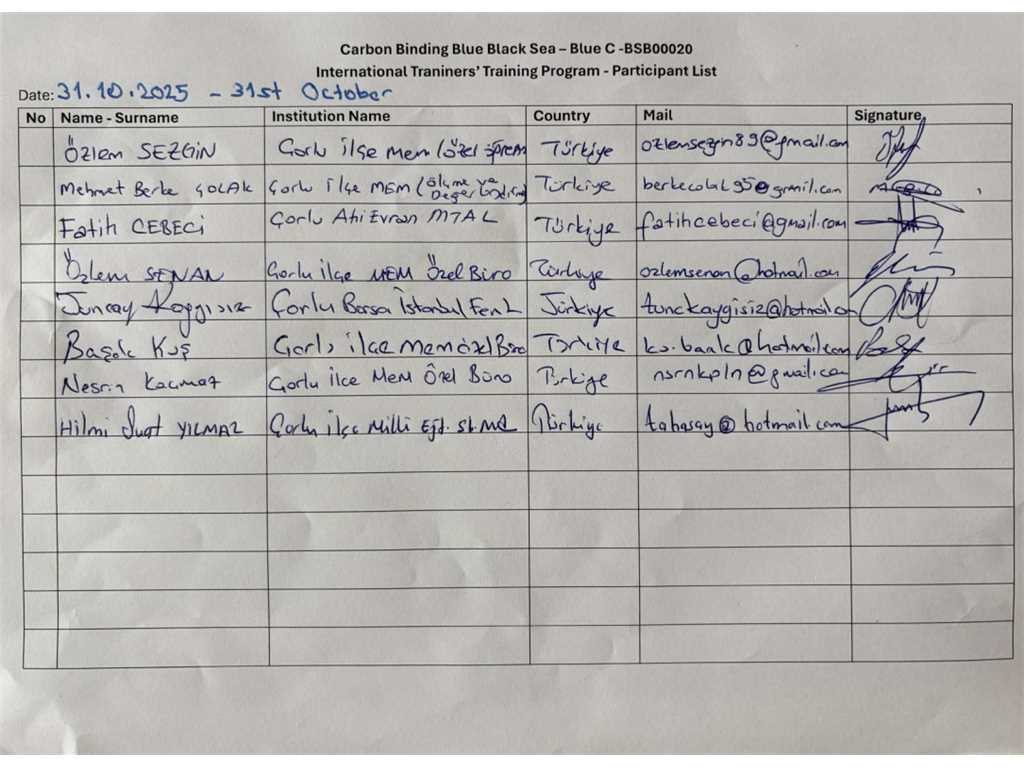 Carbon Binding Blue Black Sea – Blue C -BSB00020
International Traniners' Training Program - Participant List
Date: 31.10.2025 - 31st October
No Name - Surname Institution Name Country Mail Signature
Özlem SEZGİN Çorlu ilçe mem (özel Türkiye
Mehmet Berke ÇOLAK Çorlu ilçe MEM (ölçme ve Değerlendirme) Türkiye
Fatih CEBECİ Çorlu Ahi Evran MTAL Türkiye fatihcebeci@gmail.com
Özlem SENAN Çorlu ilçe MEM Özel Büro Türkiye ozlemsenan@hotmail.com
Tuncay Kaygısız Çorlu Borsa İstanbul Fen L Türkiye
Başak Kuş Çorlu ilçe mem özel Büro Türkiye
Nesrin Kaçmaz Çorlu ilce Mem Özel Büro Türkiye nsrnkpln@gmail.com
Hilmi Suat YILMAZ Çorlu ilçe Milli Eğt. Türkiye tabasay@hotmail.com